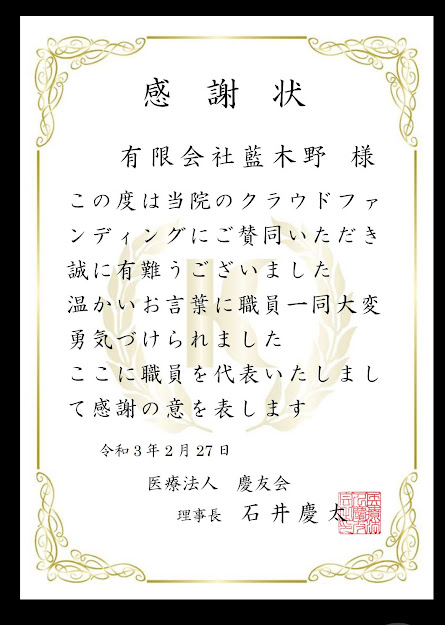 感謝状
有限会社藍木野 様
この度は当院のクラウドファ
ンディングにご賛同いただき
誠に有難うございました
温かいお言葉に職員一同大変
勇気づけられました
ここに職員を代表いたしまし
て感謝の意を表します
令和3年2月27日
医療法人 慶友会
理事長 石井慶太